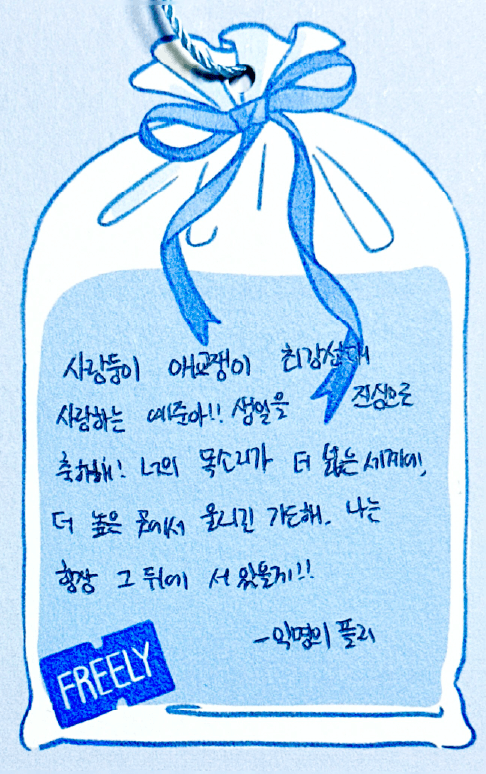 사랑둥이 애교쟁이
사랑하는 예준아!! 생일을 진심으로
축하해! 너의 목소리가 더 넓은 세계에,
더 높은 곳에서 울리길 기도해. 나는
항상 그 뒤에 서 있을게!!
-익명의 플리
FREELY